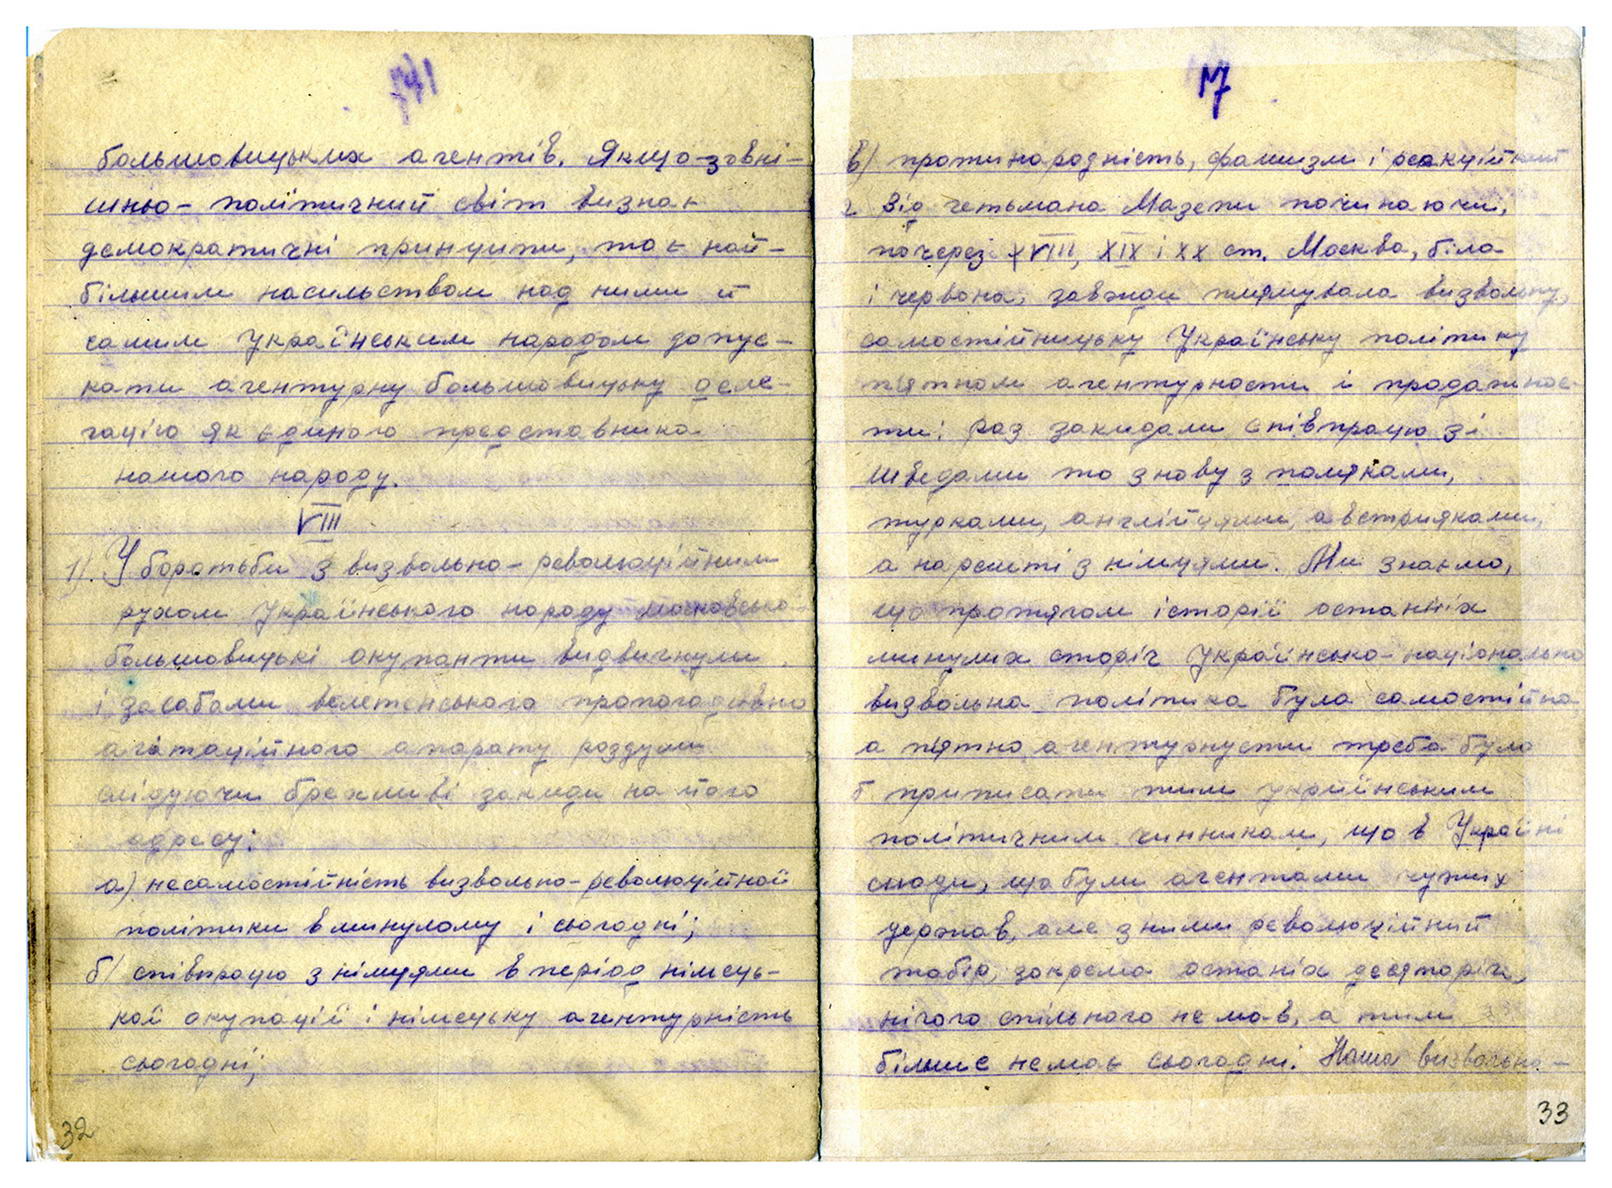 большовицьких агентів. Якщо зовні-
шньо-політичний світ визнає
демократичні принципи, то є най-
більшим насильством над ними й
самим Українським народом допус-
кати агентурну большовицьку деле-
гацію як єдиного представника
нашого народу.
VIII
1). У боротьби з визвольно-революційним
рухом Українського народу московсько-
большовицькі окупанти видвигнули
і засобами велетенського пропогадивно
агатаційного апарату роздули
слідуючи брехливі закиди на його
адресу:
а) несамостійність визвольно-революційной
політики в минулому і сьогодні;
б/ співпрацю з німцями в період німець-
кой окупацій і німецьку агентурність
сьогодні;
32
17
в/ протинародність, фашизм і реакційний
Від гетьмана Мазепи починаючи,
почерез XVIII, XIX і XX ст. Москва, біла
і червона, завжди плямувала визвольну,
самостійницьку Українську політику
пятном агентурности і продажнос-
ти: раз закидали співпрацю зі
шведами то знову з поляками,
турками, англійцями, австрияками,
а нарешті з німцями. Ми знаємо,
що протягом історії останніх
минулих сторіч Українсько-національно
визвольна політика була самостійна,
а пятно агентурности треба було
приписати тим українським
політичним чинникам, що в Україні
сиоди, що були агентами чужих
держав, але з ними революційний
табір, зокрема останіх десяторіч,
нічого спільного не мав, а тим
більше немає сьогодні. Наша визвольно-
33